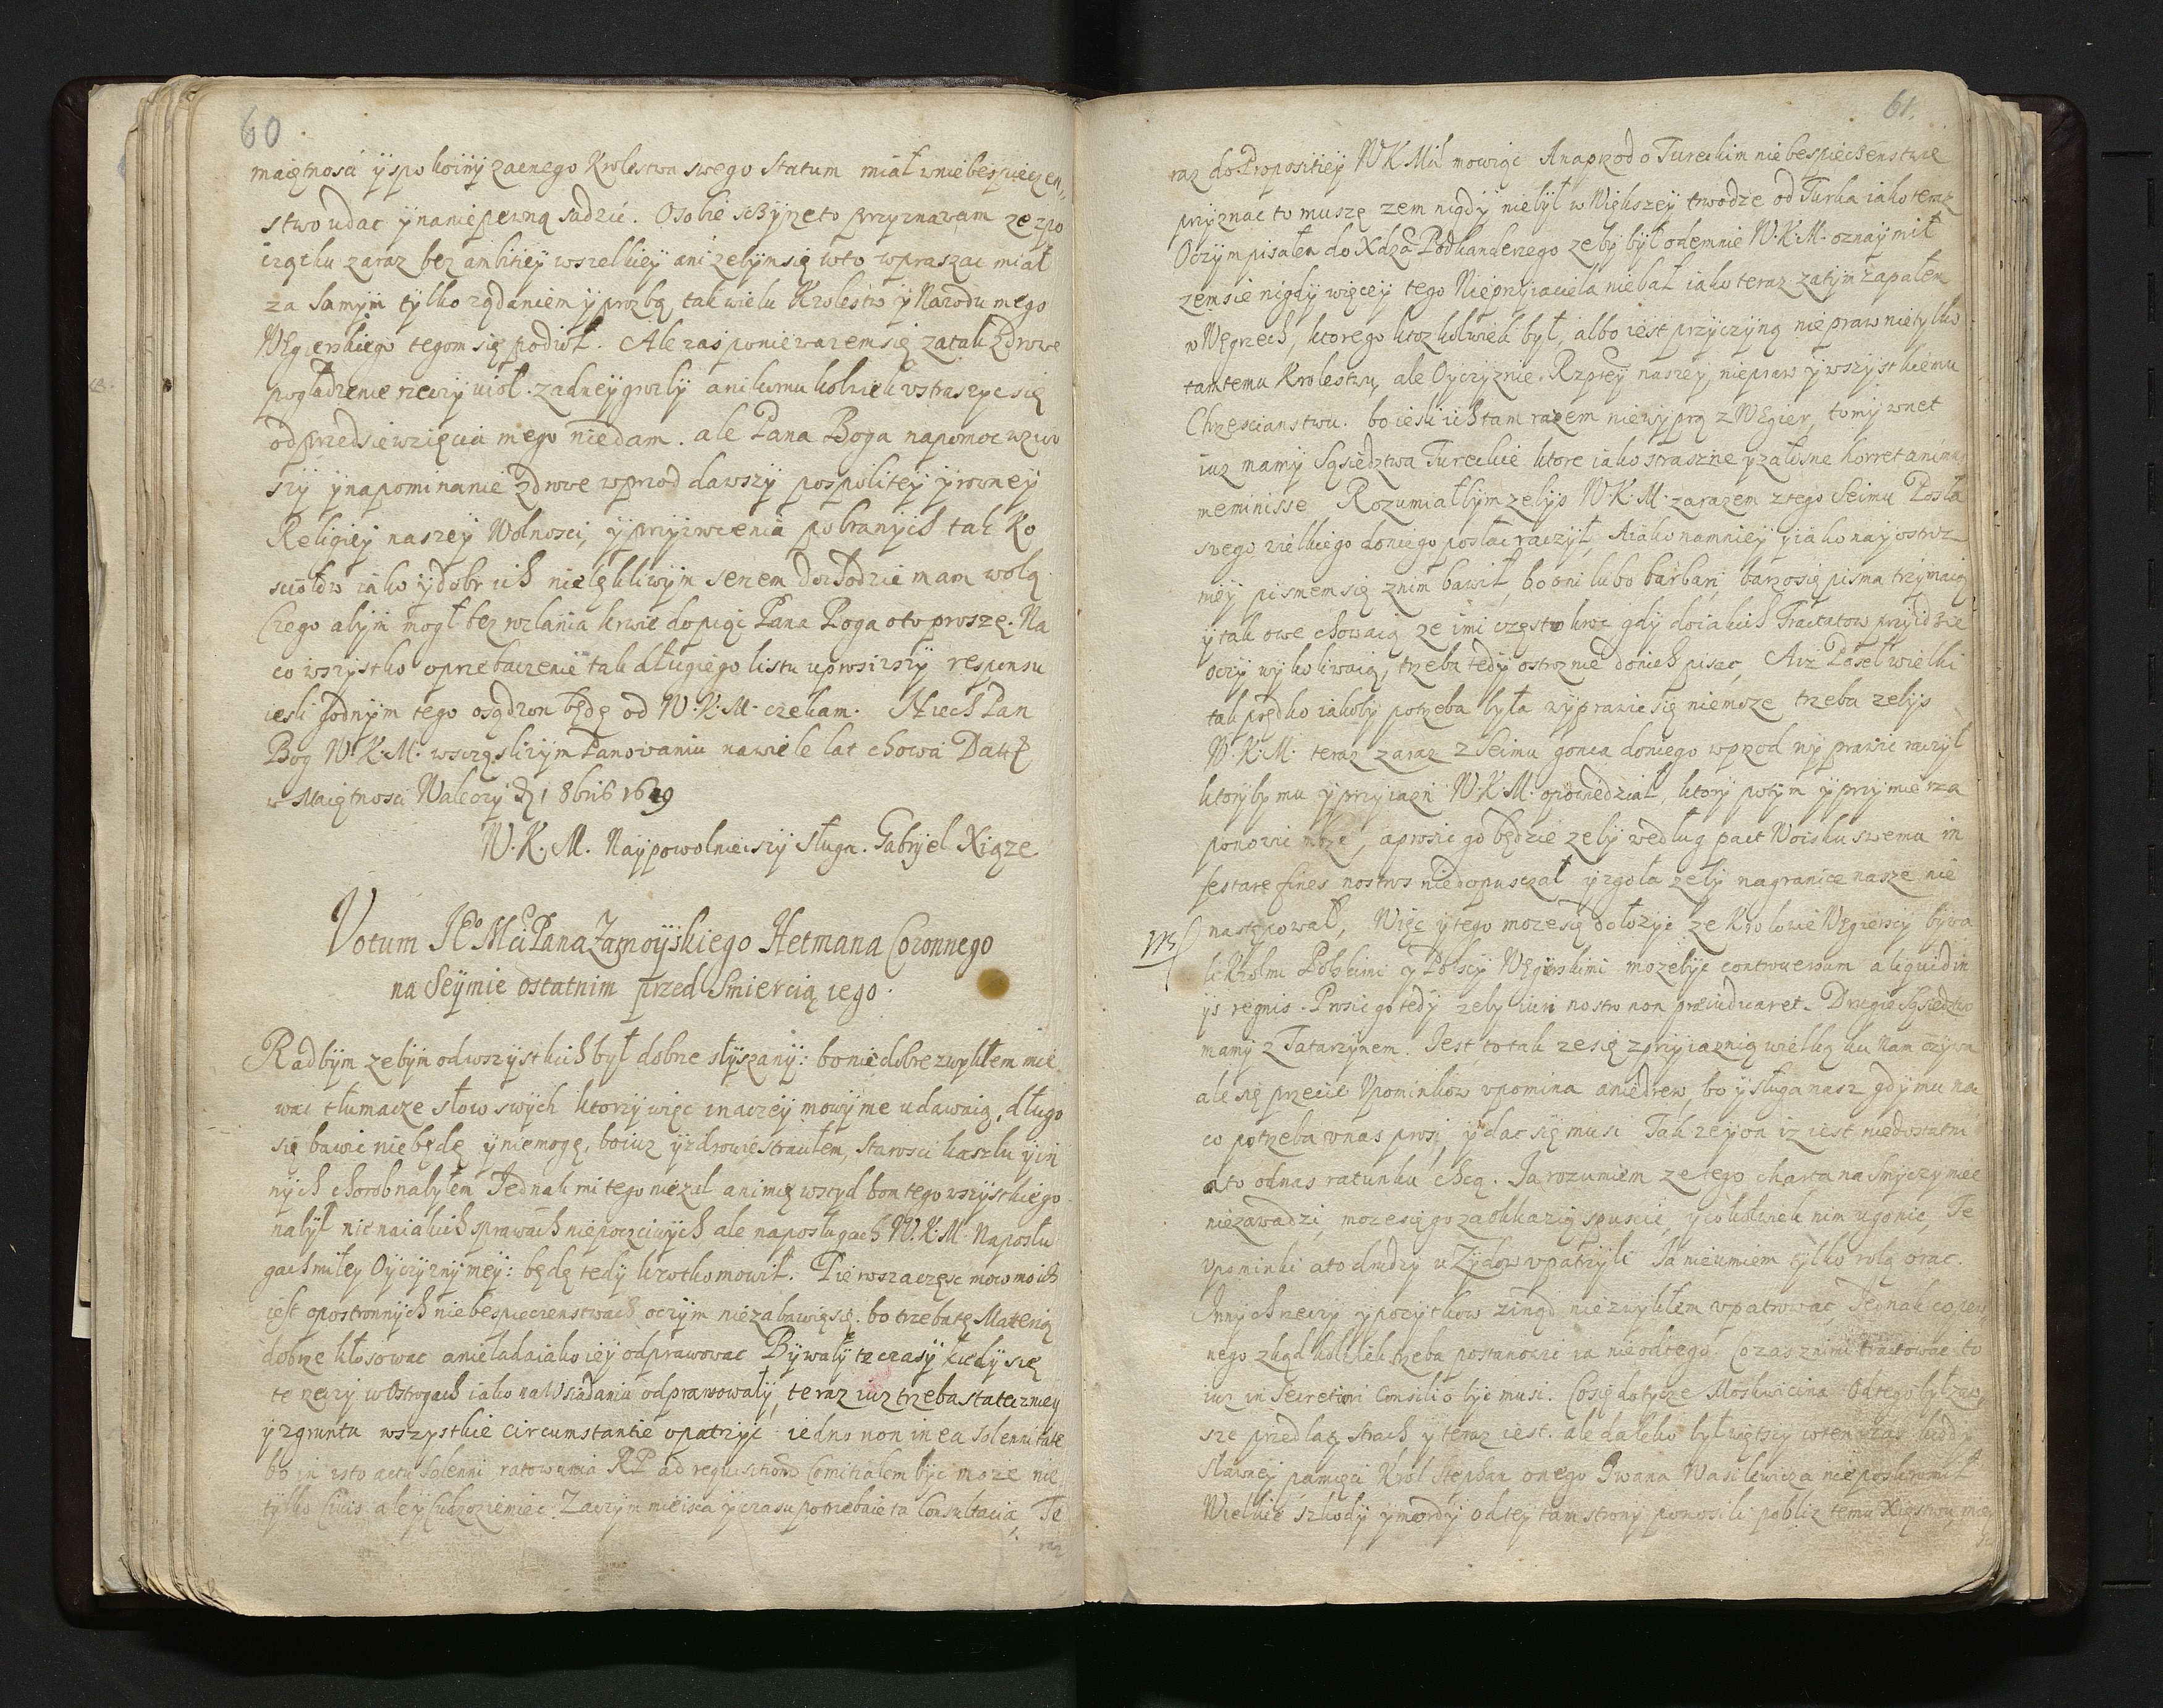 60
maiętnosci y spokoiny zacnego Krolestwa swego Statum miał w niebespieczen„
stwo udac y na niepewną sadzić. O sobie iście przyznawam ze z po
iątku zaraz bez ambitiey wszelkiey ani zebym się w to wpraszac miał
za samym tylko ządaniem y prozbą tak wielu Krolestw y Narodu mego
Węgierskiego tegom się podiął. Ale zas poniewazem się za tak zdrowe
pogładzenie rzeczy uiął. zadney grozby ani komu kolwiek ustraszyc się
od przedsiewzięcia mego niedam. ale Pana Boga na pomoc wzuw
szy y napominanie zdrowe wprzod dawszy pospolitey y rowney
Religiey naszey Wolnosci, y przywrcenia pobranych tak Ko
sciołow iako y dobr ich nielękliwym sercem dochodzić mam wolą.
Czego abym mogł bez rozlania krwie dopiąć Pana Boga oto proszę. Na
co wszystko o przebaczenie tak długiego listu uprosiwszy responsu
iesli godnym tego osądzon będę od W. K. M. czekam. Niech Pan
Bog W. K. M. w sczęsliwym Panowaniu na wiele lat chowa Dattt
w Maiętnosci Walcozy D 1 8bris 1619
W. K. M. Naypowolnieiszy sługa. Gabryel Xiąze
Votum Jeo Mci Pana Zamoyskiego Hetmana Coronnego
na Seymie ostatnim przed Smiercią iego.
Radbym zebym od wszystkich był dobrze słyszany: bo nie dobre zwykłem mie
wac tłumacze słow swych ktorzy więc inaczey mowy me udawaią, długo
się bawic nie będę y niemogę, bo iuz y zdrowie straciłem, starosci kaszlu y in
nych chorob nabyłem Jednak mi tego nie zal ani mię wstyd bom tego wszystkiego
nabył nie na iakich sprawach niepoczciwych ale na posługach W. K. M. Na posłu
gach miłey Oyczyzny mey: będę tedy krotko mowił. Pierwsza częsc mow moich
iest o postronnych niebespieczenstwach o czym nie zabawię się. bo trzeba tę Materią
dobrze kłosowac a nie lada iako iey odprawowac Bywały te czasy kiedy się
te rzeczy w Ostrogach iako na Wsiadaniu odprawowały, teraz iuz trzeba stateczniey
y z gruntu wszystkie circumstantie opatrzyc iedno non in ea solennitate
bo in isto actu solenni ratowania RP ad requisitionem Comitialem być moze nie
tylko Civis ale y Cudzoziemiec. Zaczym mieisca y czasu potrzebuie ta Consultacia, Te
raz
61.
raz do Propositiey W K Mci mowiąc A naprzod o Tureckim niebespieczenstwie
przyznac to muszę zem nigdy niebył w Większey trwodze od Turka iako teraz
O czym pisałem do Xdza Podkanclerzego zeby był odemnie W. K. M. oznaymił
zem sie nigdy więcey tego Nieprzyiaciela nie bał iako teraz za tym zapałem
w Węgrzech, ktorego ktozkolwiek był, albo iest przyczyną nie praw nie tylko
tamtemu Krolestwu, ale Oyczyznie Rzptey naszey, niepraw y wszystkiemu
Chrzescianstwu. bo iesli ich tam razem nie wyprą z Węgier, to my wnet
iuz mamy Sąsiedztwa Tureckie ktore iako straszne y załosne horret animus
meminisse Rozumiałbym zebys W. K. M. zarazem z tego Seimu Posła
swego wielkiego do niego posłac raczył, A iako namniey y iako nayostroz
niey pismem się z nim bawił, bo oni lubo barbari, barzo się pisma trzymaią
y tak owe chowaią ze imi częstokroc gdy do iakich Tractatow przyidzie
oczy wykoliwaią, trzeba tedy ostroznie do nich pisac, A iz Poseł wielki
tak prędko iakoby potrzeba była wyprawic się niemoze trzeba zebys
W. K. M. teraz zaraz z Seimu gonca do niego wprzod wyprawic raczył
ktoryby mu y przyiazn W. K. M. opowiedział, ktory potym y przymierza
ponowic moze, a prosic go będzie zeby według pact Woisku swemu in
festare fines nostros niedopusczał y zgoła zeby na granice nasze nie
następował, Więc y tego moze się dołozyc ze Krolowie Węgierscy bywa
li Krolmi Polskimi y Polscy Węgirskimi moze byc controversum aliquid in
ijs regnis. Prosic go tedy zeby iuri nostro non præiudicaret. Drugie Sąsiedztwo
mamy z Tatarzynem. Jest to tak ze się z przyiaznią wielką ku nam ozywa
ale się przecie Upominkow upomina a nie drew, bo y sługa nasz gdy mu na
co potrzeba u nas prosi, y dac się musi Takze y on iz iest niedostatni
a to od nas ratunku chcą. Ja rozumiem ze tego charta na smyczy miec
nie zawadzi, moze się go za okkazią spuscic, y co kolwiek nim ugonic, Te
Upominki a to drudzy u Zydow upatrzyli Ja nieumiem tylko rolą orac.
Innych rzeczy y pozytkow zinąd nie zwykłem upatrowac, Jednak co pew
nego zkąd kolwiek trzeba postanowic ia nie od tego. Co zas z nimi tractowac to
iuz in Secretiori Consilio byc musi. Co się dotycze Moskwicina Od tego był zaw
sze przed laty strach y teraz iest. ale daleko był większy w ten czas kiedy
Sławney pamięci Krol Stephan onego Iwana Wasilewicza nie poskromił
Wielkie szkody y mordy od tey tam strony ponosili pobliz temu Xięstwu mie